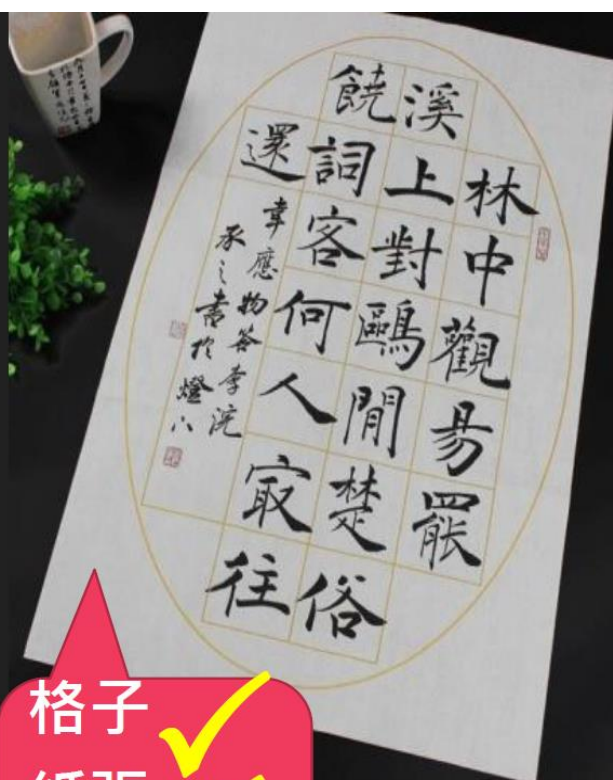 林中觀易罷
溪上對鷗閒楚俗
饒詞客何人㝡往
還
韋應物答李浣
承之書扵燈下
格子